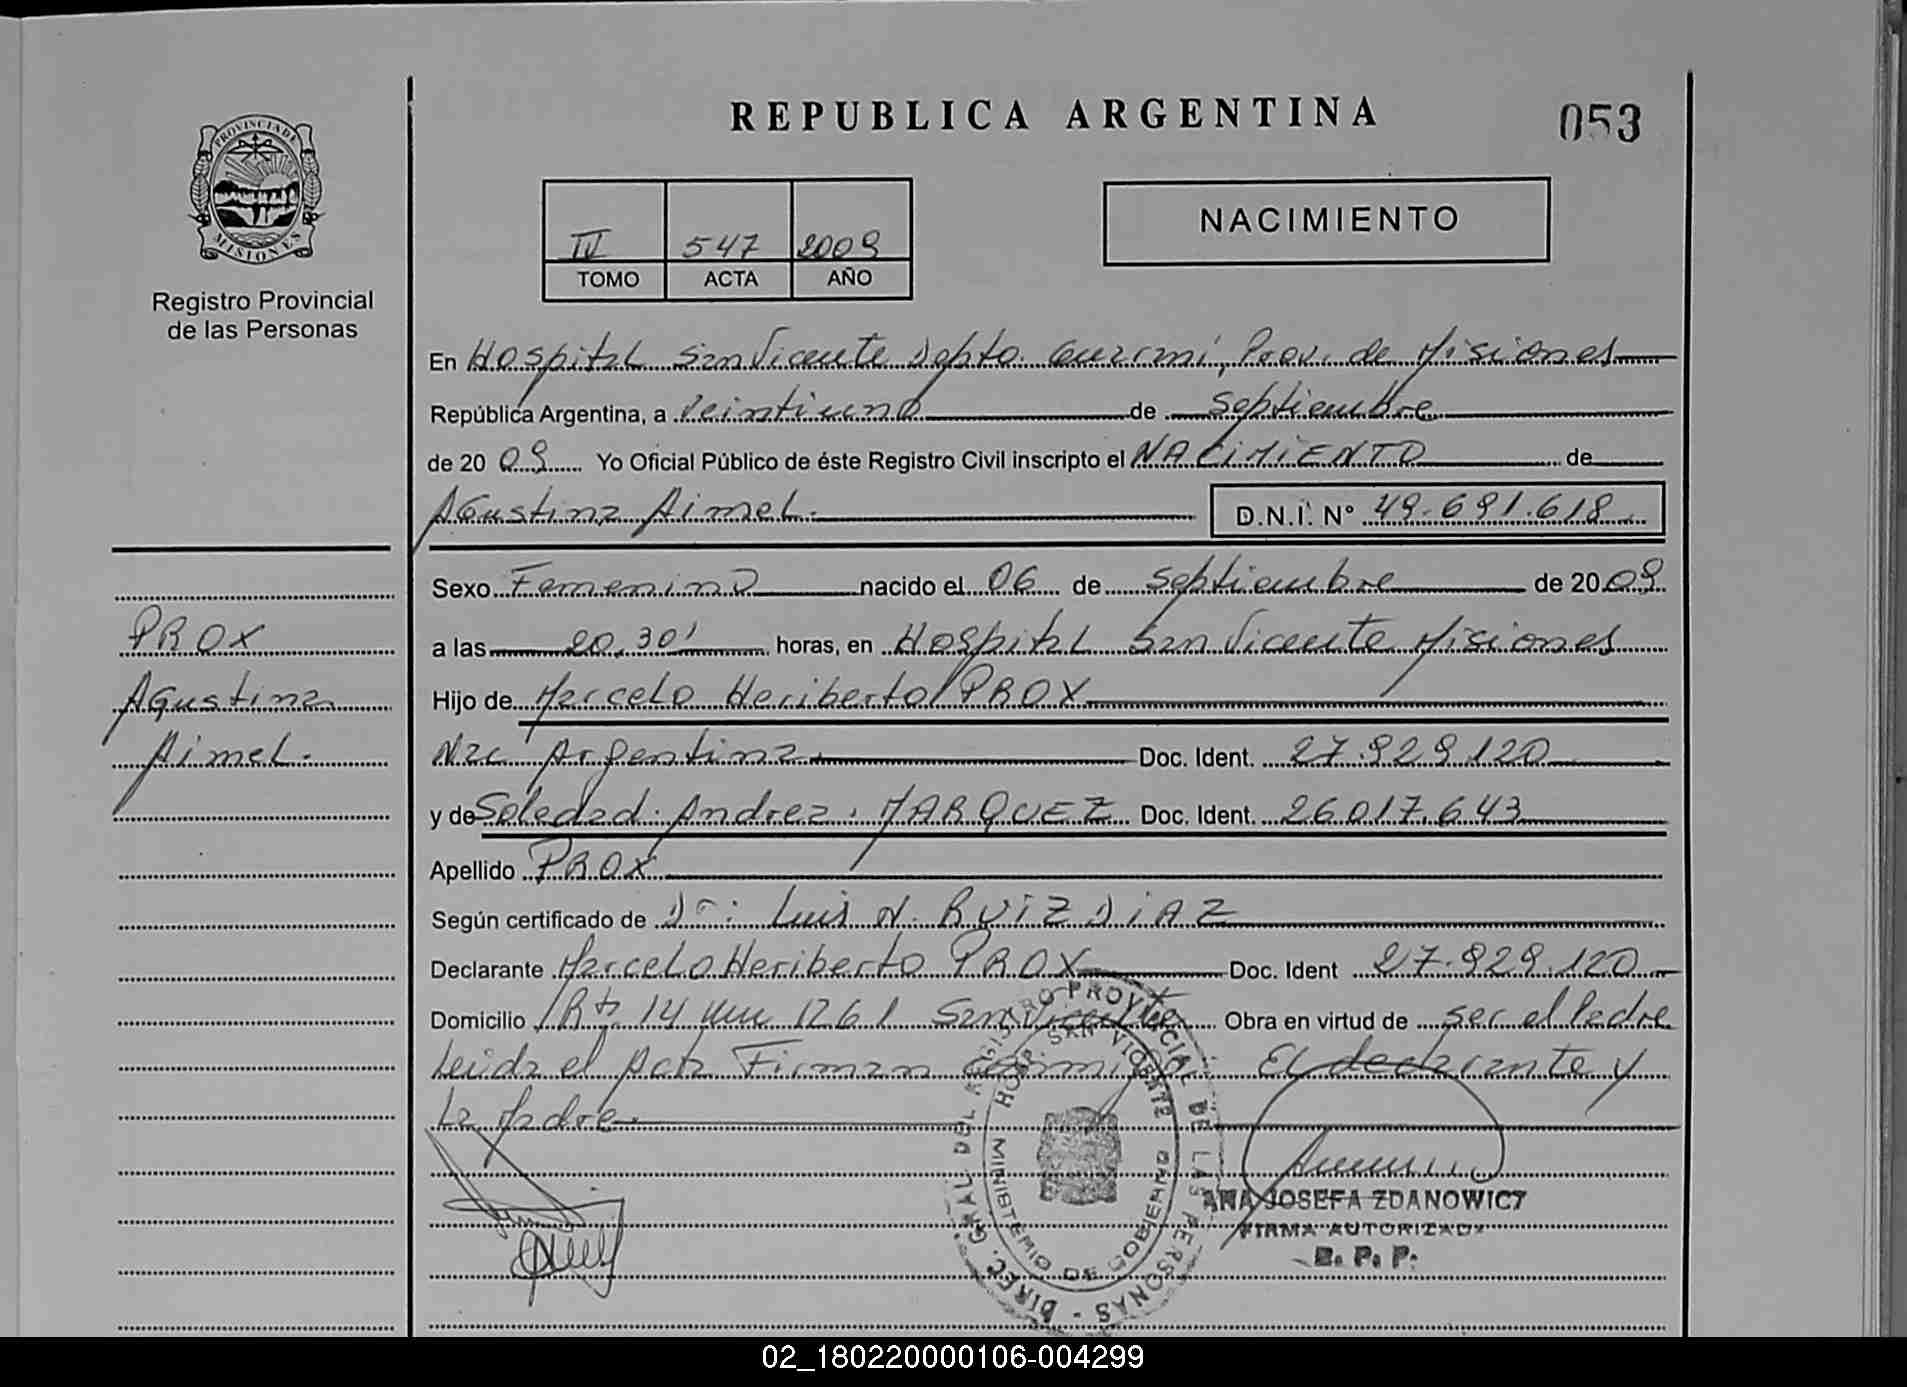 REPUBLICA ARGENTINA
053
PROVINCIA DE
MISIONES
Registro Provincial
de las Personas
IV 547 2009
TOMO ACTA AÑO
NACIMIENTO
En Hospital San Vicente Depto. Guaraní, Prov. de Misiones
República Argentina, a Veintiuno de Septiembre
de 20 09 Yo Oficial Público de éste Registro Civil inscripto el NACIMIENTO de
Agustina Aimel. D.N.I. N° 49.691.618
Sexo Femenino nacido el 06 de Septiembre de 20 09
a las 20,30' horas, en Hospital San Vicente Misiones
Hijo de Marcelo Heriberto PROX
Nac Argentina Doc. Ident. 27.929.120
y de Soledad Andrea MARQUEZ Doc. Ident. 26.017.643
Apellido PROX
Según certificado de Dr: Luis N. RUIZ DIAZ
Declarante Marcelo Heriberto PROX Doc. Ident 27.929.120
Domicilio Rta 14 km 1261 San Vicente Obra en virtud de ser el Padre
Leida el Acta Firman conmigo El declarante y
La Madre
PROX
Agustina
Aimel.
DIREC. GRAL. DEL REGISTRO PROVINCIAL DE LAS PERSONAS -
HOSP. SAN VICENTE
MINISTERIO DE GOBIERNO
ANA JOSEFA ZDANOWICZ
FIRMA AUTORIZADA
R. P. P.
02_180220000106-004299